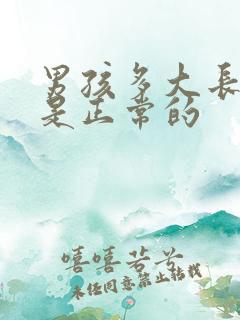 男孩多大长
是正常的
嘻嘻若兮
未经同意禁止转载